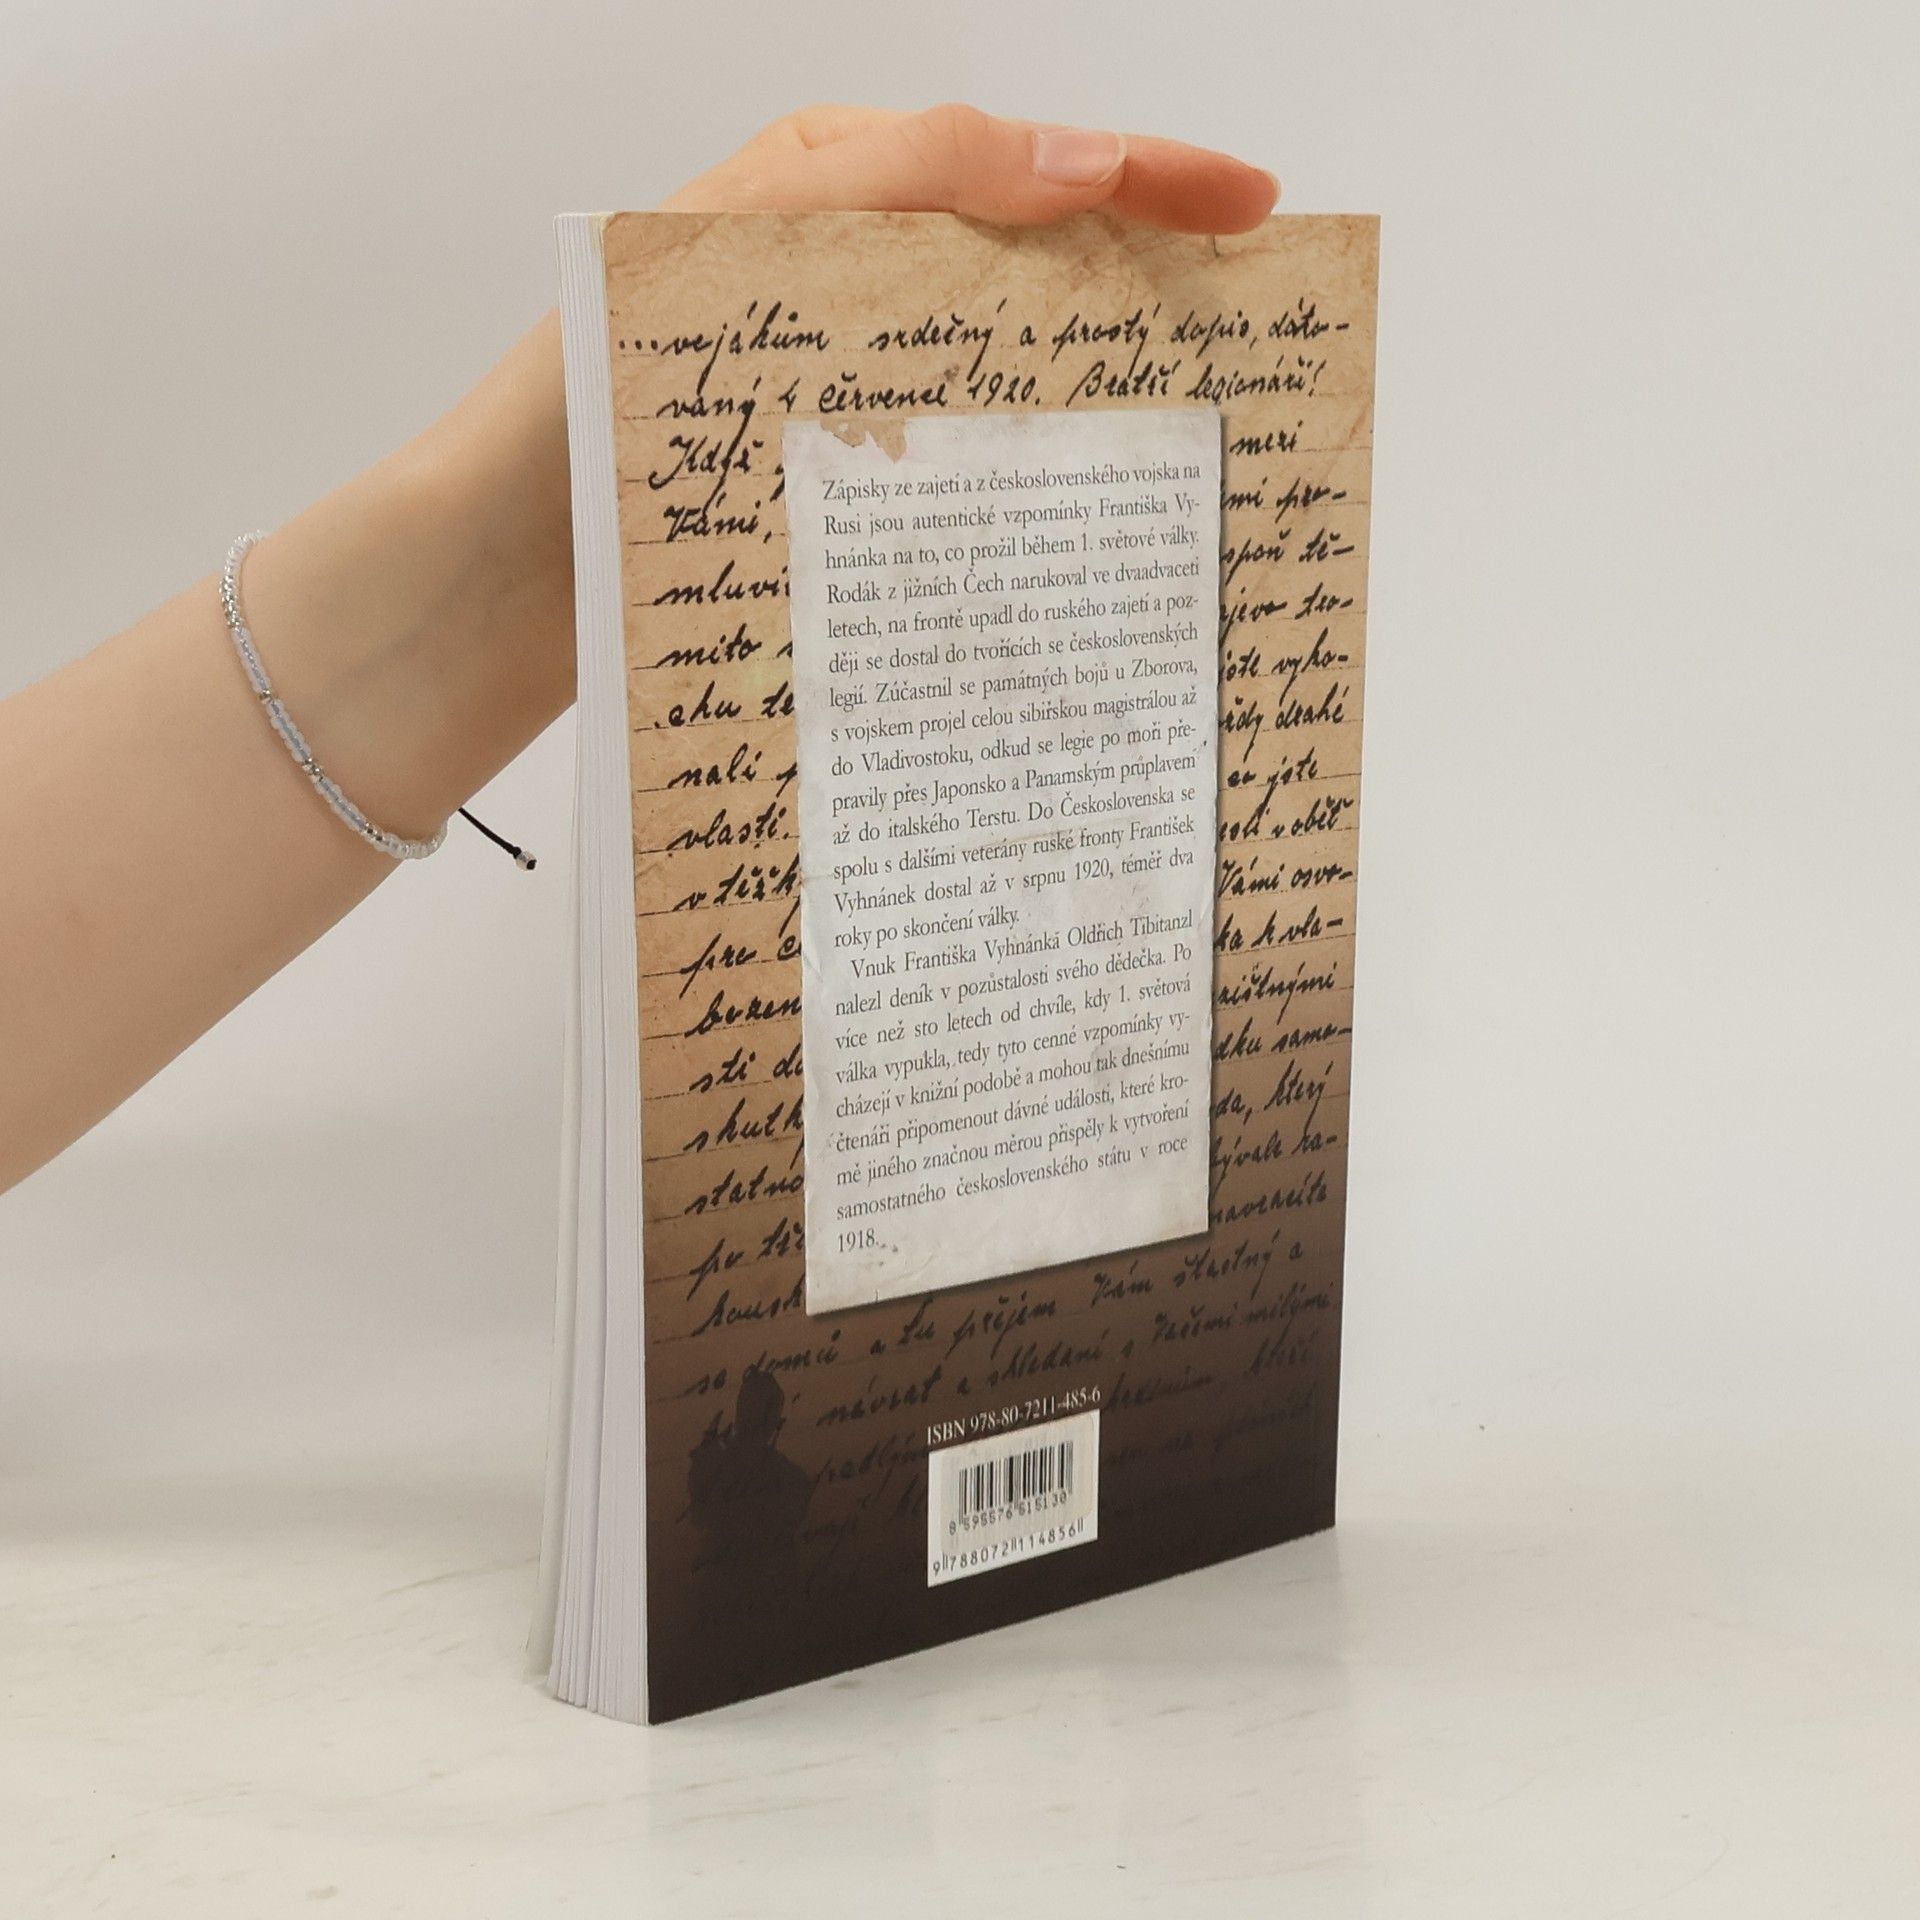 ...vejákům srdečný a prostý dopis, dato-
vaný 4 července 1920. Bratři legionáři!
Když mezi
Vámi,
mluvi
mito
chu te
nali
vlasti.
v těžk
pro
bozen
sti do
skutk
statno
po
kousk
Zápisky ze zajetí a z československého vojska na
Rusi jsou autentické vzpomínky Františka Vy-
hnánka na to, co prožil během 1. světové války.
Rodák z jižních Čech narukoval ve dvaadvaceti
letech, na frontě upadl do ruského zajetí a poz-
ději se dostal do tvořících se československých
legií. Zúčastnil se památných bojů u Zborova,
s vojskem projel celou sibiřskou magistrálou až
do Vladivostoku, odkud se legie po moři pře-
pravily přes Japonsko a Panamským průplavem
až do italského Terstu. Do Československa se
spolu s dalšími veterány ruské fronty František
Vyhnánek dostal až v srpnu 1920, téměř dva
roky po skončení války.
Vnuk Františka Vyhnánka Oldřich Tibitanzl
nalezl deník v pozůstalosti svého dědečka. Po
více než sto letech od chvíle, kdy 1. světová
válka vypukla, tedy tyto cenné vzpomínky vy-
cházejí v knižní podobě a mohou tak dnešnímu
čtenáři připomenout dávné události, které kro-
mě jiného značnou měrou přispěly k vytvoření
samostatného československého státu v roce
1918.
mi pro-
spoň tě-
vyko-
ždy drahé
co jste
v oběť
Vámi osvo-
ka k vla-
zištnými
dku samo-
da, který
navracíte
se domů a tu přejem Vám šťastný a
návrat a shledání s Vašemi milými
ISBN 978-80-7211-485-6
8 595576 515130
9 788072 114856